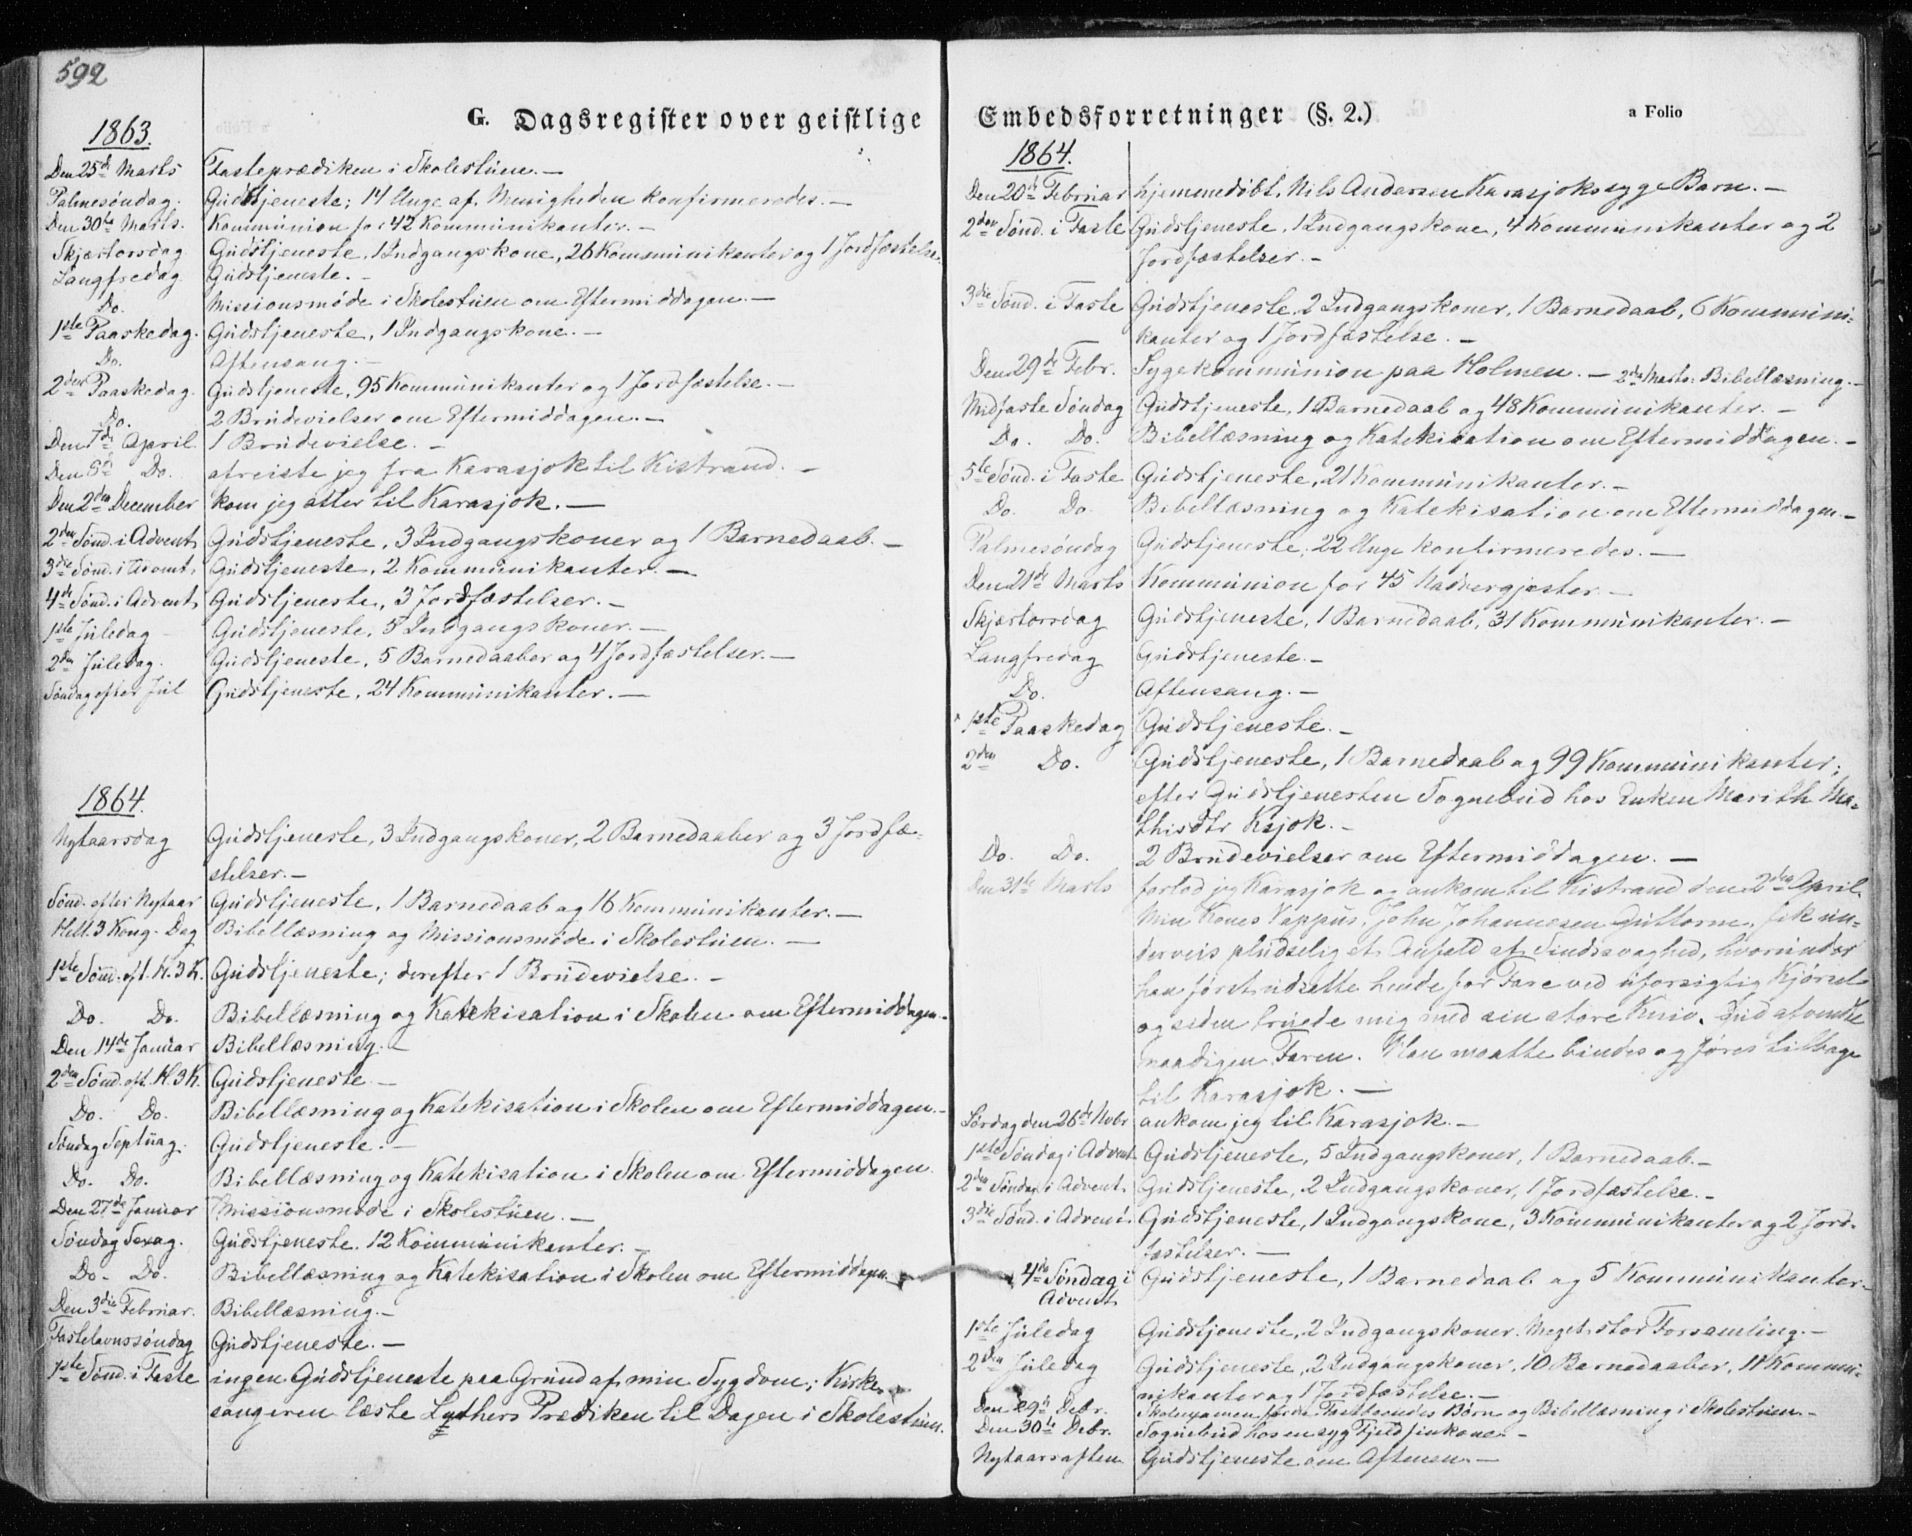 592
G. Dagsregister over geistlige
1863.
Den 25de Marts Fasteprædiken i Skolestuen.—
Palmesøndag. Gudstjeneste; 14 Unge af Menigheden konfirmeredes.—
Den 30te Marts. Kommunion for 42 Kommunikanter.—
Skjærtorsdag Gudstjeneste, 1 Indgangskone, 26 Kommunikanter og 1 Jordfæstelse.
Langfredag Gudstjeneste.—
Do. Missionsmøde i Skolestuen om Eftermiddagen.—
1ste Paaskedag. Gudstjeneste, 1 Indgangskone.—
Do. Aftensang.—
2den Paaskedag. Gudstjeneste, 95 Kommunikanter og 1 Jordfæstelse.—
Do. 2 Brudevielser om Eftermiddagen.—
Den 7de April. 1 Brudevielse.—
Den 8de Do. afreiste jeg fra Karasjok til Kistrand.—
Den 2den December kom jeg atter til Karasjok.—
2den Sønd. i Advent Gudstjeneste, 3 Indgangskoner og 1 Barnedaab.—
3die Sønd. i Advent. Gudstjeneste, 2 Kommunikanter.—
4de Sønd. i Advent Gudstjeneste, 3 Jordfæstelser.—
1ste Juledag Gudstjeneste, 5 Indgangskoner.—
2den Juledag. Gudstjeneste, 5 Barnedaaber og 4 Jordfæstelser.—
Søndag efter Jul Gudstjeneste, 24 Kommunikanter.—
1864.
Nytaarsdag Gudstjeneste, 3 Indgangskoner, 2 Barnedaaber og 3 Jordfæ-
stelser.—
Sønd. efter Nytaar Gudstjeneste, 1 Barnedaab og 16 Kommunikanter.—
Hell. 3 Kong. Dag Bibellæsning og Missionsmøde i Skolestuen.—
1ste Sønd. eft. H. 3 K. Gudstjeneste; derefter 1 Brudevielse.—
Do. Do. Bibellæsning og Katekisation i Skolen om Eftermiddagen.—
Den 14de Januar Bibellæsning.—
2den Sønd. eft. H. 3 K. Gudstjeneste.—
Do. Do. Bibellæsning og Katekisation i Skolen om Eftermiddagen.—
Søndag Septuag. Gudstjeneste.—
Do. Do. Bibellæsning og Katekisation i Skolen om Eftermiddagen.
Den 27de Januar Missionsmøde i Skolestuen.—
Søndag Sexag. Gudstjeneste. 12 Kommunikanter.—
Do. Do. Bibellæsning og Katekisation i Skolen om Eftermiddagen.
Den 3die Februar. Bibellæsning.—
Fastelavnssøndag Gudstjeneste.—
1ste Sønd. i Faste ingen Gudstjeneste paa Grund af min Sygdom; Kirke-
sangeren læste Luthers Prædiken til Dagen i Skolestuen.
Embedsforretninger (§. 2.)
a Folio
1864.
Den 20de Februar hjemmedøbt Nils Andersen Karasjoks syge Barn.—
2den Sønd. i Faste Gudstjeneste, 1 Indgangskone, 4 Kommunikanter og 2
Jordfæstelser.—
3die Sønd. i Faste Gudstjeneste, 2 Indgangskoner, 1 Barnedaab, 6 Kommuni-
kanter og 1 Jordfæstelse.—
Den 29de Febr. Sygekommunion paa Holmen.— 2den Marts: Bibellæsning.—
Midfaste Søndag Gudstjeneste, 1 Barnedaab og 48 Kommunikanter.—
Do. Do. Bibellæsning og Katekisation om Eftermiddagen.—
5te Sønd. i Faste Gudstjeneste, 21 Kommunikanter.—
Do. Do. Bibellæsning og Katekisation om Eftermiddagen.—
Palmesøndag Gudstjeneste; 22 Unge konfirmeredes.—
Den 21de Marts Kommunion for 45 Nadvergjester.—
Skjærtorsdag Gudstjeneste, 1 Barnedaab, 31 Kommunikanter.—
Langfredag Gudstjeneste.—
Do. Aftensang.—
1ste Paaskedag Gudstjeneste.—
2den Do. Gudstjeneste, 1 Barnedaab og 99 Kommunikanter;
efter Gudstjenesten Sognebud hos Enken Marith Ma-
thisdtr Ksjok.—
Do. Do. 2 Brudevielser om Eftermiddagen.—
Den 31te Marts forlod jeg Karasjok og ankom til Kistrand den 2den April.
Min Kones Vappus, John Johannesen Guttorm, fik un-
derveis pludselig et Anfald af Sindssvaghed, hvorunder
han først udsatte hende for Fare ved uforsigtig Kjørsel
og siden truede mig med sin store Kniv. Gud afvendte
naadigen Faren. Han maatte bindes og føres tilbage
til Karasjok.—
Lørdag den 26de Novbr ankom jeg til Karasjok.—
1ste Søndag i Advent Gudstjeneste, 5 Indgangskoner, 1 Barnedaab.—
2den Søndag i Advent. Gudstjeneste, 2 Indgangskoner, 1 Jordfæstelse.—
3die Sønd. i Advent. Gudstjeneste, 1 Indgangskone, 3 Kommunikanter og 2 Jord-
fæstelser.—
4de Søndag i Gudstjeneste, 1 Barnedaab og 5 Kommunikanter.
Advent
1ste Juledag Gudstjeneste, 2 Indgangskoner. Meget stor Forsamling.—
2den Juledag Gudstjeneste, 2 Indgangskoner, 10 Barnedaaber, 11 Kommu-
nikanter og 1 Jordfæstelse.—
Den 29de Debr. Skoleexamen for de Fastboendes Børn og Bibellæsning i Skolestuen.—
Den 30te Debr. Sognebud hos en syg Fjeldfinkone.—
Nytaarsaften Gudstjeneste om Aftenen.—